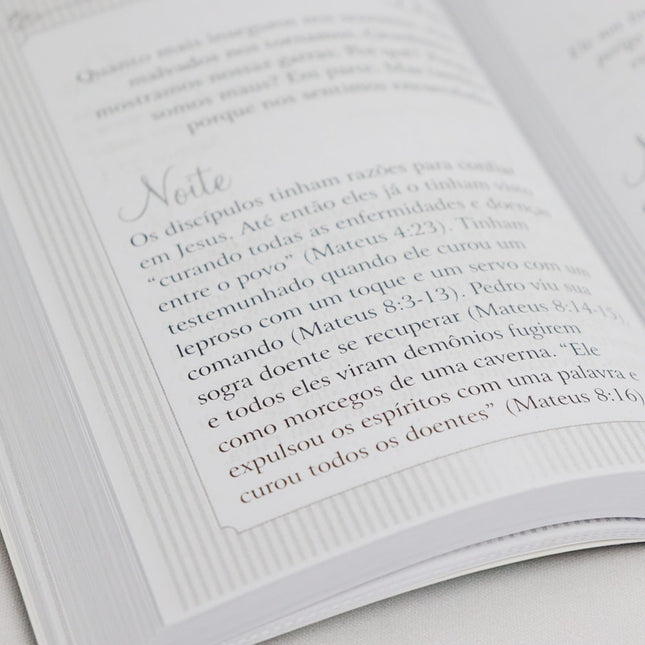 Quanto mais inseguros nos
malvados nos tornamos.
mostramos nossas garras. Por quê?
somos maus? Em parte. Mas
porque nos sentimos
Noite
Os discípulos tinham razões para confiar
em Jesus. Até então eles já o tinham visto
“curando todas as enfermidades e doenças
entre o povo” (Mateus 4:23). Tinham
testemunhado quando ele curou um
leproso com um toque e um servo com um
comando (Mateus 8:3-13). Pedro viu sua
sogra doente se recuperar (Mateus 8:14-15),
e todos eles viram demônios fugirem
como morcegos de uma caverna. “Ele
expulsou os espíritos com uma palavra e
curou todos os doentes” (Mateus 8:16)